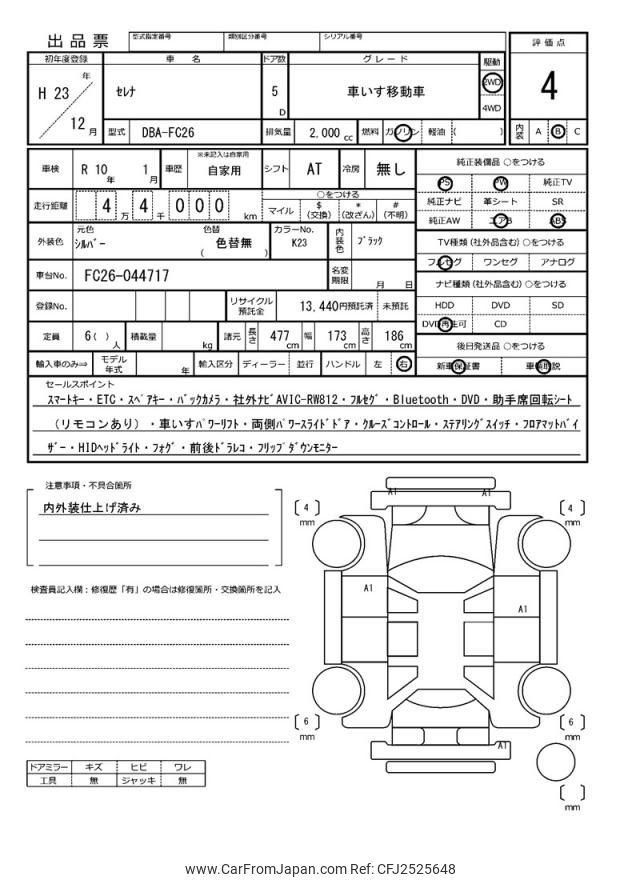 出品票 型式指定番号 類別区分番号 シリアル番号
評価点
4
初年度登録 車名 ドア数 グレード 駆動
H 23 年 12 月 ｾﾚﾅ 5 D 車いす移動車 2WD 4WD
型式 DBA-FC26 排気量 2,000 cc 燃料 ガソリン 軽油 ( )
内装 A B C
車検 R 10 年 1 月 車歴 ※未記入は自家用 自家用 シフト AT 冷房 無し
走行距離 4 万 4 千 0 0 0 km ○をつける
マイル $ (交換) * (改ざん) # (不明)
外装色 元色 ｼﾙﾊﾞｰ 色替 ( 色替無 ) カラーNo. K23 内装色 ﾌﾞﾗｯｸ
車台No. FC26-044717 名変期限 月 日
登録No. リサイクル預託金 13,440円預託済 未預託
定員 6( ) 人 積載量 kg 諸元 長さ 477 cm 幅 173 cm 高さ 186 cm
輸入車のみ⇒ モデル年式 年 輸入区分 ディーラー 並行 ハンドル 左 右
純正装備品 ○をつける
PS PW 純正TV
純正ナビ 革シート SR
純正AW エアB ABS
TV種類(社外品含む)○をつける
フルセグ ワンセグ アナログ
ナビ種類(社外品含む)○をつける
HDD DVD SD
DVD再生可 CD
後日発送品 ○をつける
新車保証書 車輌取説
セールスポイント
ｽﾏｰﾄｷｰ・ETC・ｽﾍﾟｱｷｰ・ﾊﾞｯｸｶﾒﾗ・社外ﾅﾋﾞAVIC-RW812・ﾌﾙｾｸﾞ・Bluetooth・DVD・助手席回転ｼｰﾄ
(リモコンあり)・車いすﾊﾟﾜｰﾘﾌﾄ・両側ﾊﾟﾜｰｽﾗｲﾄﾞﾄﾞｱ・ｸﾙｰｽﾞｺﾝﾄﾛｰﾙ・ｽﾃｱﾘﾝｸﾞｽｲｯﾁ・ﾌﾛｱﾏｯﾄﾊﾞｲ
ｻﾞｰ・HIDﾍｯﾄﾞﾗｲﾄ・ﾌｫｸﾞ・前後ﾄﾞﾗﾚｺ・ﾌﾘｯﾌﾟﾀﾞｳﾝﾓﾆﾀｰ
注意事項・不具合箇所
内外装仕上げ済み
検査員記入欄：修復歴「有」の場合は修復箇所・交換箇所を記入
ドアミラー キズ ヒビ ワレ
工具 無 ジャッキ 無
A1 A1
[ 4 ] mm [ 4 ] mm
A1
A1
[ 6 ] mm [ 6 ] mm
A1
[ ] mm
www.CarFromJapan.com Ref: CFJ2525648